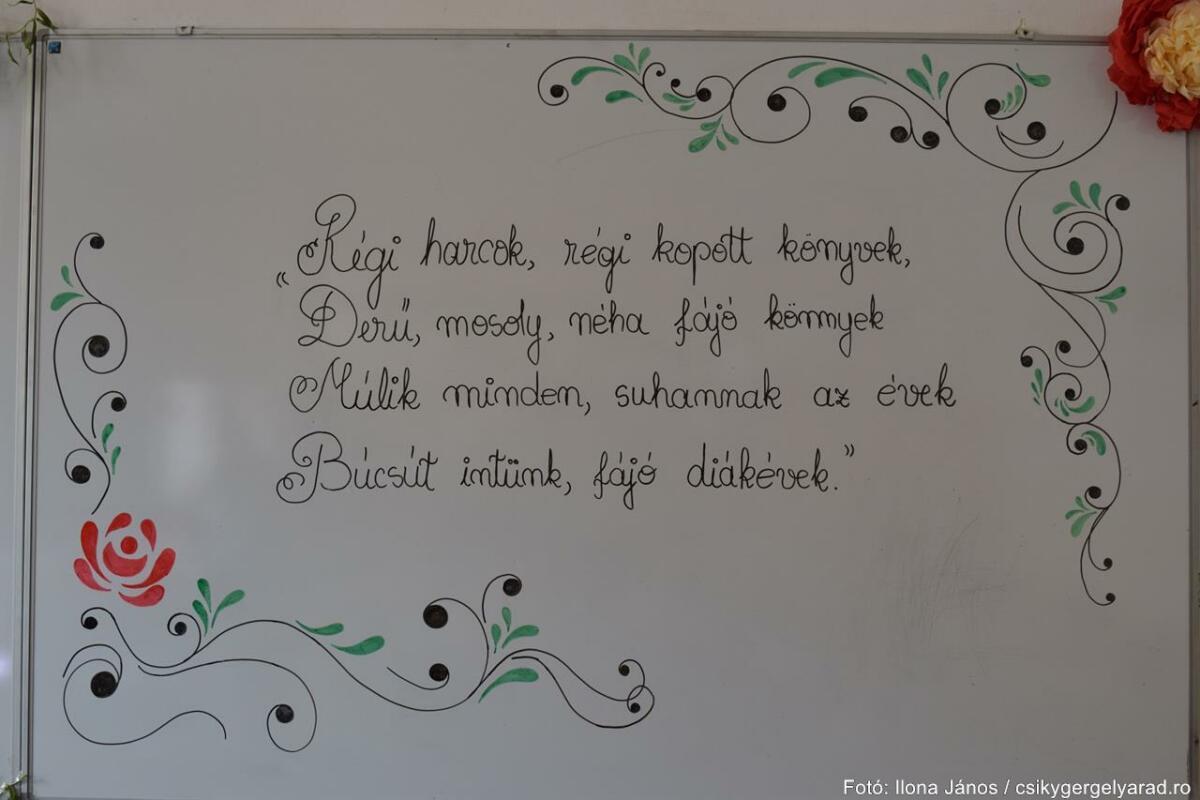 „Régi harcok, régi kopott könyvek,
Derű, mosoly, néha fájó könnyek
Múlik minden, suhannak az évek
Búcsút intünk, fájó diákévek.”
Fotó: Ilona János / csikygergelyarad.ro